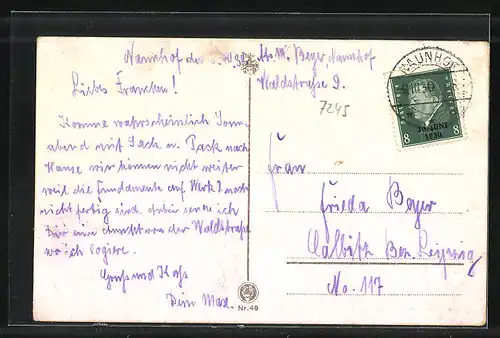 Naunhof den 8.10.30
Abs. M. Beyer Naunhof
Waldstraße 9.
7245
Liebes Frauchen!
Komme wahrscheinlich Sonn-
abend mit Sack u. Pack nach
Hause wir können nicht weiter
weil die Fundamente auf Werk 2 noch
nicht fertig sind, dabei sende ich
Dir eine Ansicht von der Waldstraße
wo ich logiere.
Gruß und Kuß
Dein Max.
NAUNHOF
30. JUNI
1930
8 8
Frau
Frieda Beyer
Calbitz Bez. Leipzig
No. 117
Nr. 49